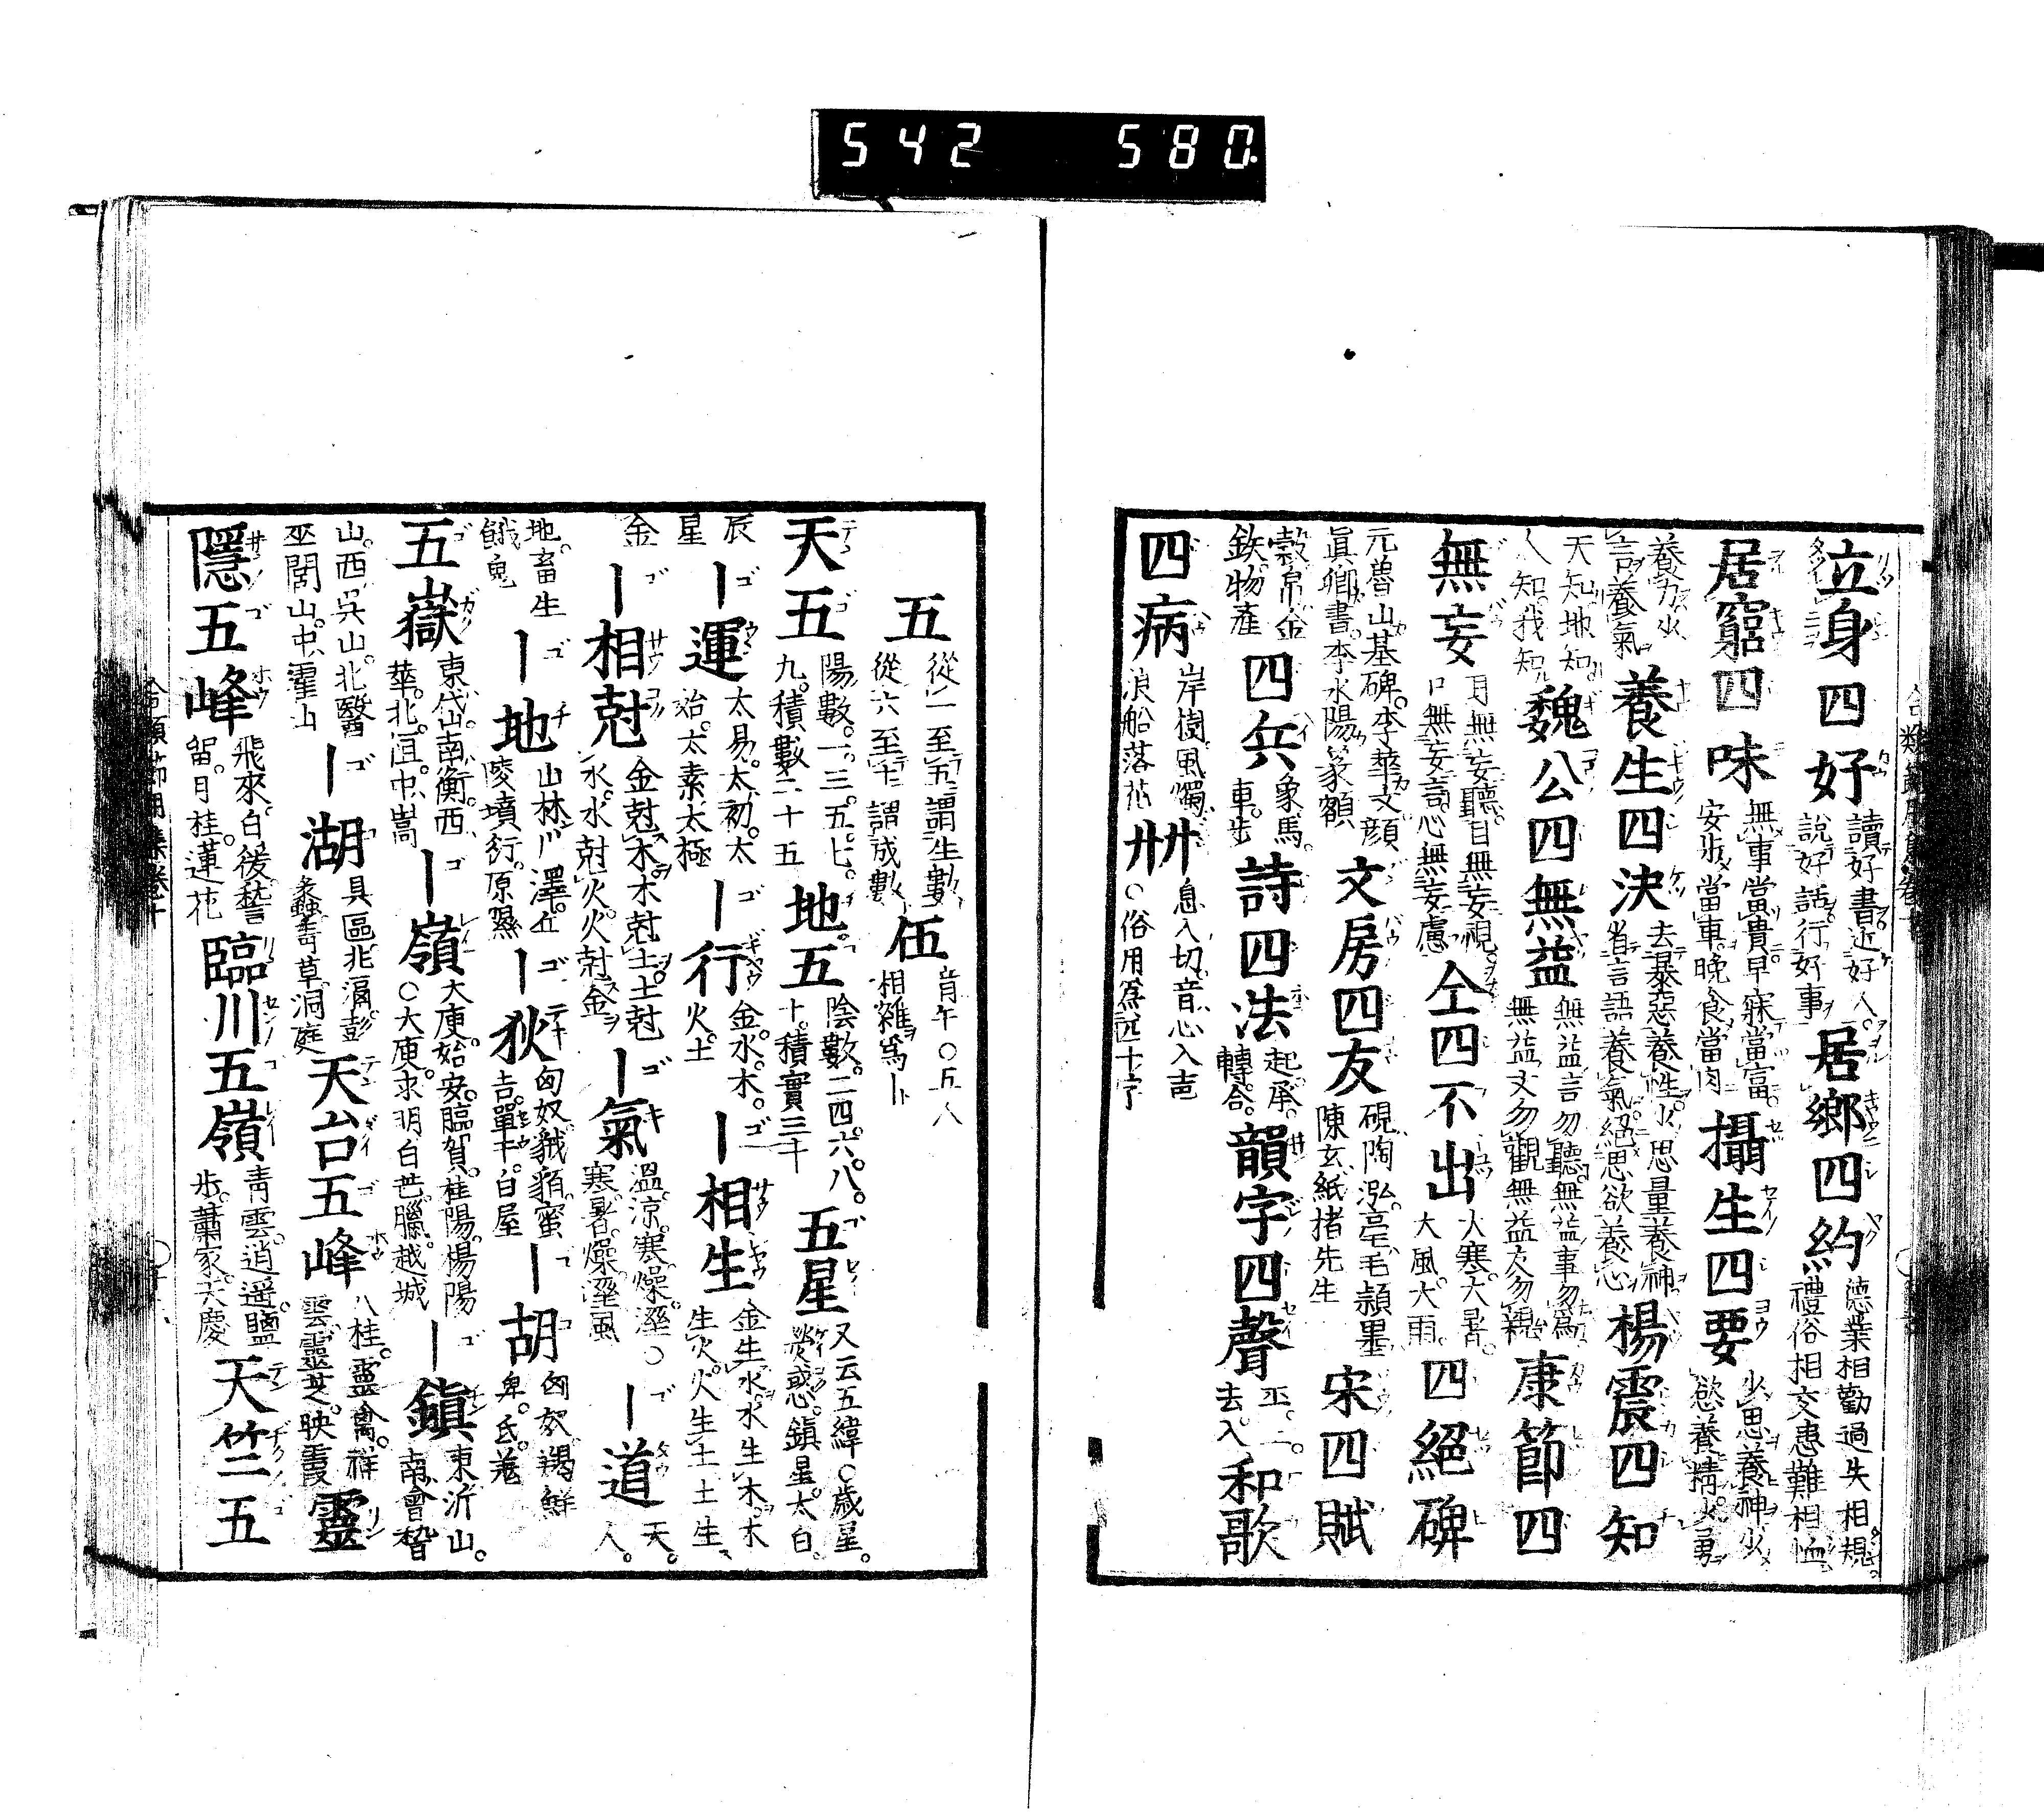 542 580
立身四好 讀好書近好人。說好話行好事 居鄉四約 德業相勸過失相規。禮俗相交患難相恤
居窮四味 無事當貴早寐當富。安步當車。晚食當肉 攝生四要 少思養神少慾養精。少勞
養力少言養氣 養生四決 去暴惡養性。少思量養神省言語養氣絕思欲養心 楊震四知
天知地知人知我知 魏公四無益 無益言勿聽無益事勿爲無益文勿觀無益友勿親 康節四
無妄 耳無妄聽。目無妄視。口無妄言。心無妄慮 仝四不出 大寒。大暑。大風。大雨。 四絕碑
元魯山墓碑。李華文顏眞卿書。李水陽篆額 文房四友 硯陶泓。毫毛頴墨陳玄紙楮先生 宋四賦
穀帛金鉄物產 四兵 象馬。車。步 詩四法 起承。轉合。 韻字四聲 平。上。去。入 和歌
四病 岸樹風燭浪船落花 卌 息入切。音心入声○俗用爲四十字
五 從一至五謂生數從六至十謂成數 伍 音午○五人相雜爲
天五 陽數。一。三。五。七。九。積數二十五 地五 陰數。二四。六。八。十。積實三十 五星 又云五緯○歲星。熒惑。鎮星。太白。
辰星 ｜運 太易。太初。太始。太素太極 ｜行 金。水。木。火。土 ｜相生 金生水。水生木。木生火。火生土土生
金 ｜相尅 金尅木木尅土。土尅水。水尅火火尅金 ｜氣 溫。涼。寒燥。溼○寒暑。燥溼風 ｜道 天。人。
地。畜生餓鬼 ｜地 山林川澤。丘陵墳衍。原隰 ｜狄 匈奴。 ｜胡 匈奴羯鮮卑。氐。羌
五嶽 東岱山南衡。西華。北恒。中嵩 ｜嶺 大庾。始安。臨賀。桂陽。楊陽 ｜鎭 東沂山。南會稽
山。西吳山。北醫巫閭山。中霍山 ｜湖 具區兆滆。彭蠡青草。洞庭 天台五峰 八桂。靈禽。祥雲靈芝。映霞 靈
隱五峰 飛來。白猨。稽留。月桂。蓮花 臨川五嶺 青雲。逍遥鹽步。蕭家。天慶 天竺五